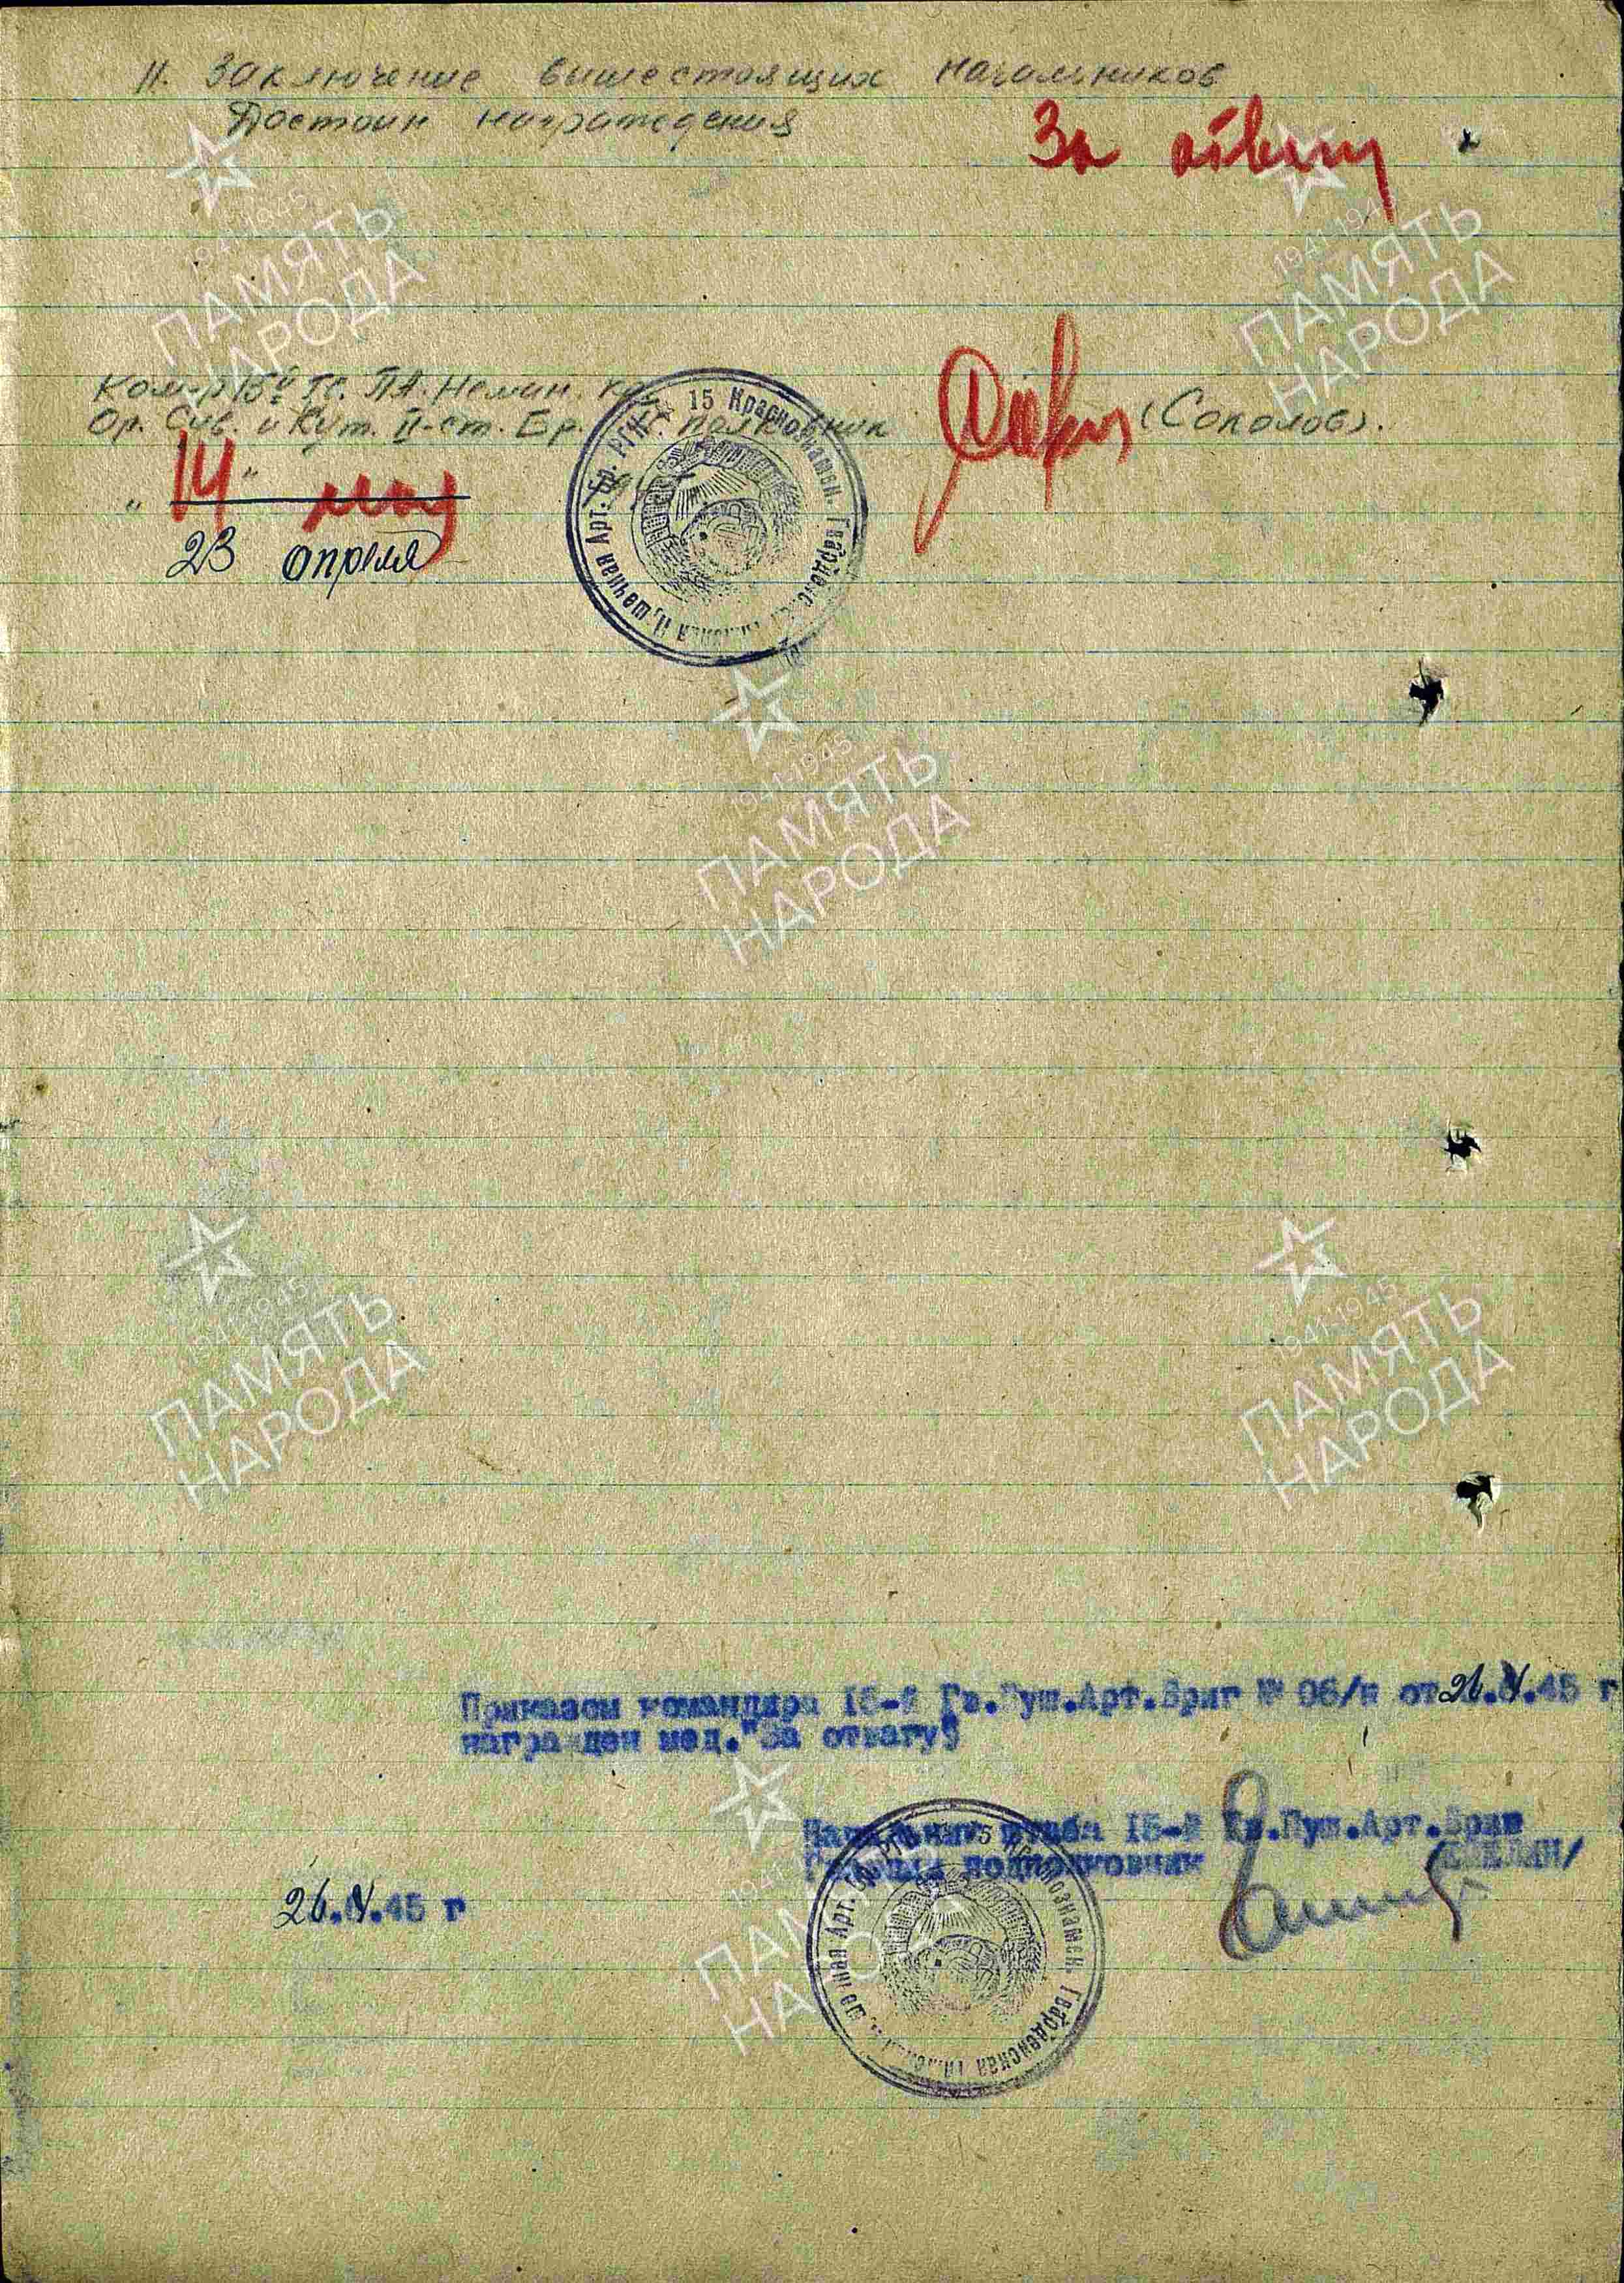 II. Заключение вышестоящих начальников
Достоин награждения
За отвагу
Ком-р 15й Гв. ПА. Неман. Кр.
Ор. Сув. и Кут. II-ст. Бр. полковник (Соколов).
" 14 " мая
23 апреля
15 Краснознамен. Гвардейс Арт. Бр. РГК
Приказом командира 15-й Гв.Пуш.Арт.Бриг № 06/н от 26.4.45 г
награжден мед."За отвагу"
Начальник штаба 15-й Гв.Пуш.Арт.Бриг
Гвардии подполковник
26.4.45 г
Краснознамен. Гвардейская Арт.
1941-1945
ПАМЯТЬ
НАРОДА
1941-1945
ПАМЯТЬ
НАРОДА
1941-1945
ПАМЯТЬ
НАРОДА
1941-1945
ПАМЯТЬ
НАРОДА
1941-1945
ПАМЯТЬ
НАРОДА
ПАМЯТЬ
НАРОДА